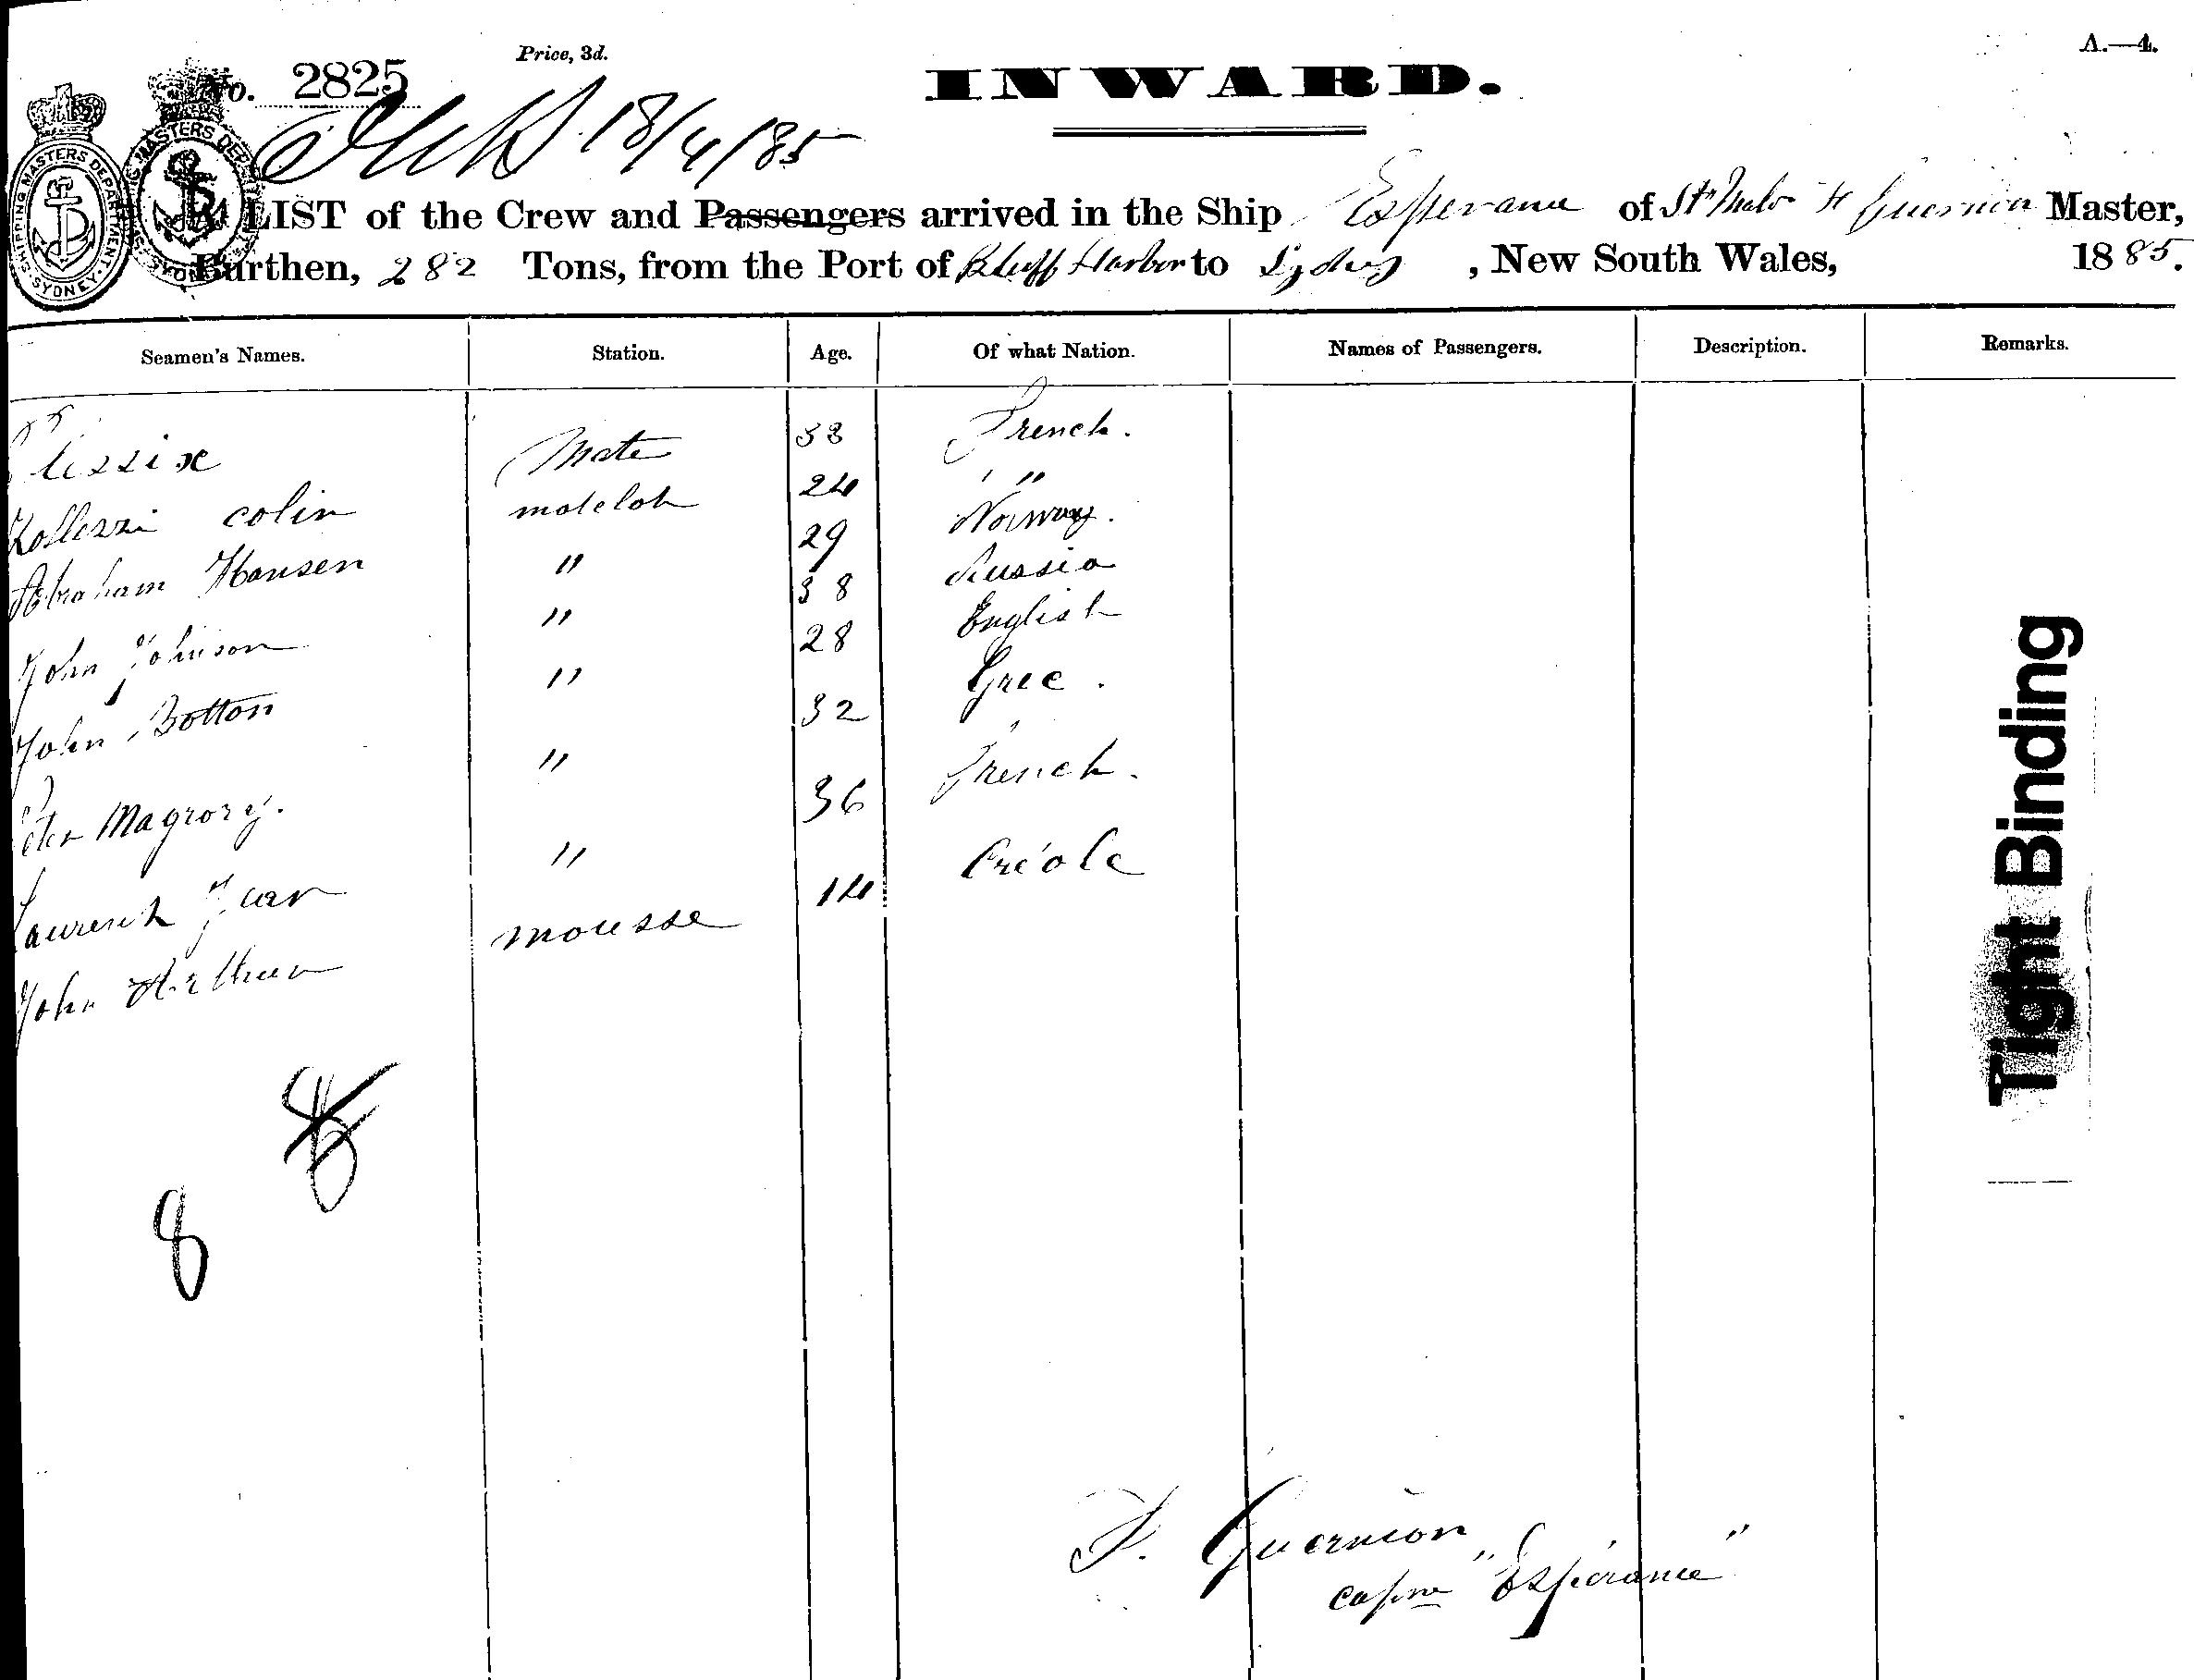 Price, 3d.
A.—4.
No. 2825
INWARD.
18/4/85
A LIST of the Crew and Passengers arrived in the Ship Esperance of St Malo Guernion Master,
Burthen, 282 Tons, from the Port of Bluff Harbor to Sydney, New South Wales, 1885.
SHIPPING MASTERS DEPARTMENT. SYDNEY.
Seamen's Names. Station. Age. Of what Nation. Names of Passengers. Description. Remarks.
Mate 53 French.
colin matelot 24 " "
Abraham Hansen " 29 Norway.
John Johnson " 38 Russia
John Botton " 28 English
Peter Magrory. " 32 Grec.
Laurent Jean " 36 French.
John Arthur mousse 14 Créole
8
8
Tight Binding
F. Guernion
capne "Espérance"